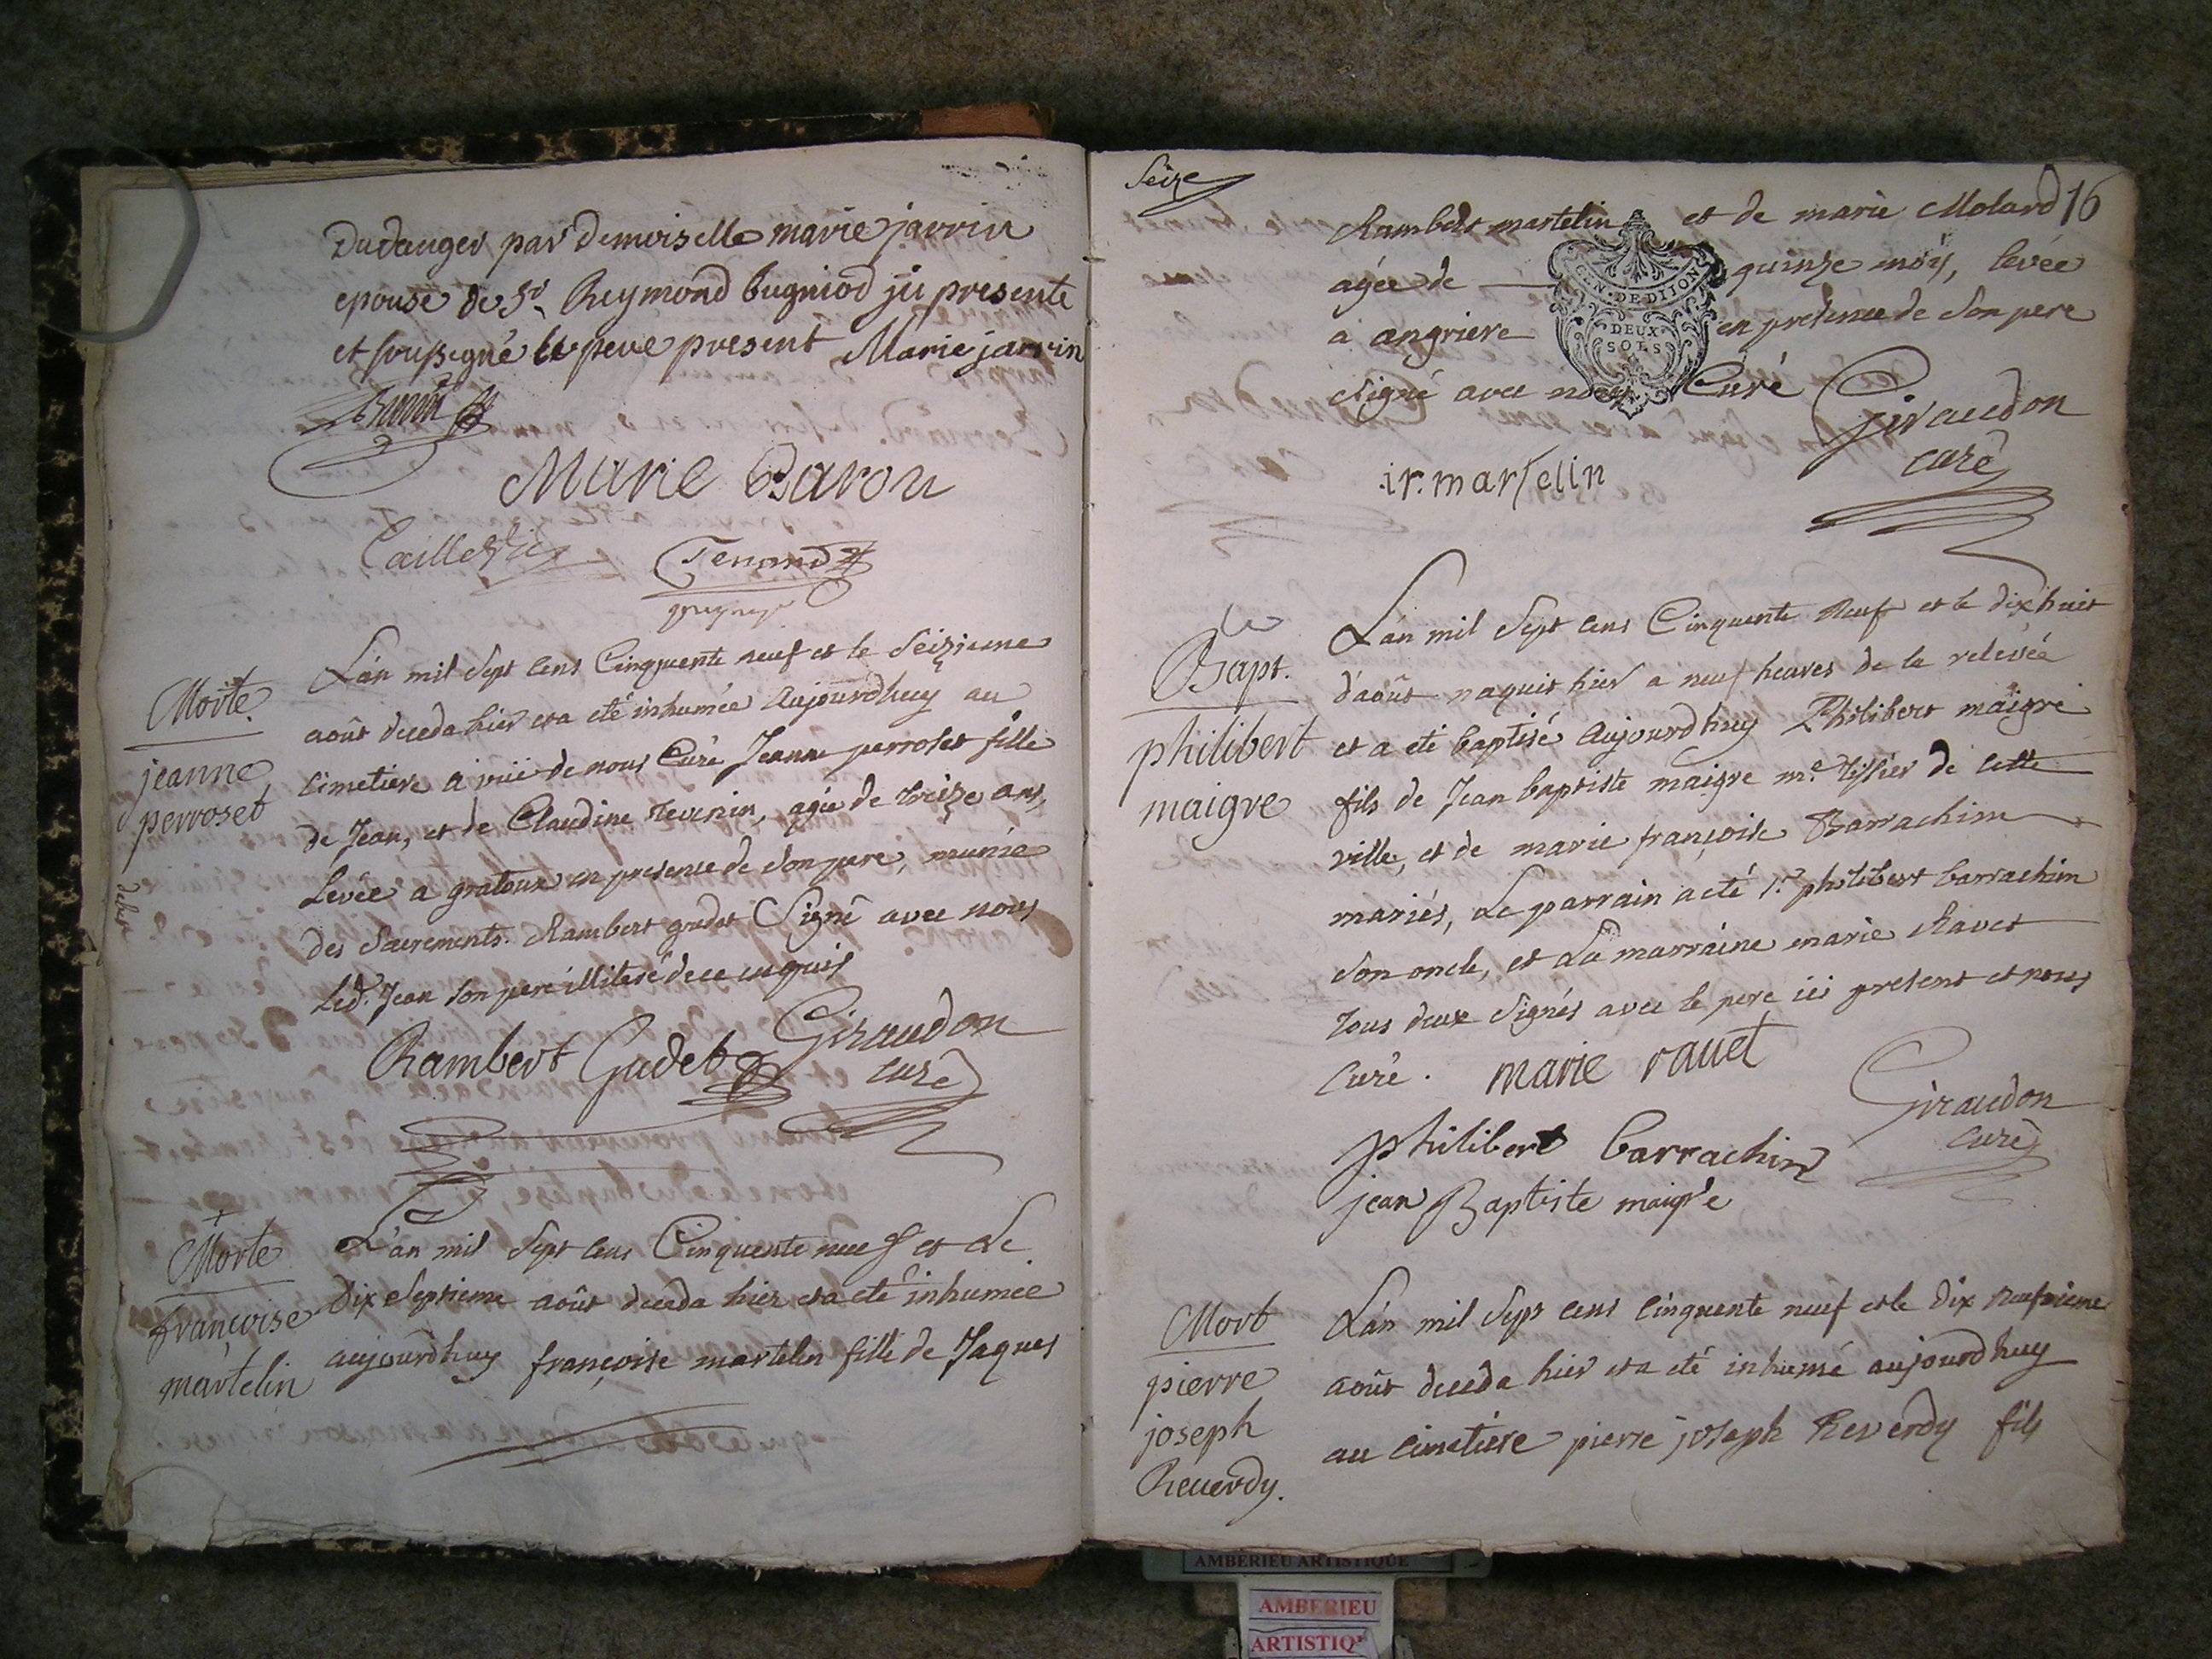 Dudanger par demoiselle marie jarrin
epouse de Sr. Reymond bugniod ici presente
et soussigné le pere present Marie jarrin
Marie Baron
Tenand
Morte
jeanne
perroset
L'an mil Sept Cens Cinquente neuf et le Seizieme
août deceda hier et a eté inhumée Aujourdhuy au
Cimetiere a vuë de nous Curé Jeanne perroset fille
de Jean, et de Claudine tevenin, agée de treize ans,
Levée a gratoux en presence de Son pere, munie
des Sacrements. Rambert gudet Signé avec nous
Led. Jean Son pere illiteré de ce enquis
Rambert Gudet
Giraudon
curé
Morte
françoise
martelin
L'an mil Sept Cens Cinquente neuf et Le
Dix Septieme août deceda hier et a eté inhumée
aujourdhuy françoise martelin fille de Jaques
Seize
16
Rambert martelin et de marie Molard
agée de quinze moys, levée
à angriere en presence de Son pere
Signé avec nous Curé
GEN. DE DIJON
DEUX
SOLS
Giraudon
curé
ir. martelin
Le
Bapt.
philibert
maigre
L'an mil Sept Cens Cinquente Neuf et le dix huit
d'août naquit hier a neuf heures de la relevée
et a eté baptisé Aujourdhuy Philibert maigre
fils de Jean baptiste maigre me. tissier de cette
ville, et de marie françoise Barrachin
mariés, Le parrain a eté Sr. philibert barrachin
Son oncle, et La marraine marie Ravet
tous deux Signés avec le pere ici present et nous
Curé.
marie ravet
Giraudon
curé
philibert barrachin
jean Baptiste maigre
Mort
pierre
joseph
Reverdy.
L'an mil Sept Cens Cinquente neuf et le Dix neufvieme
août deceda hier et a eté inhumé aujourdhuy
au Cimetiére pierre joseph Reverdy fils
AMBERIEU ARTISTIQUE
AMBERIEU
ARTISTIQ